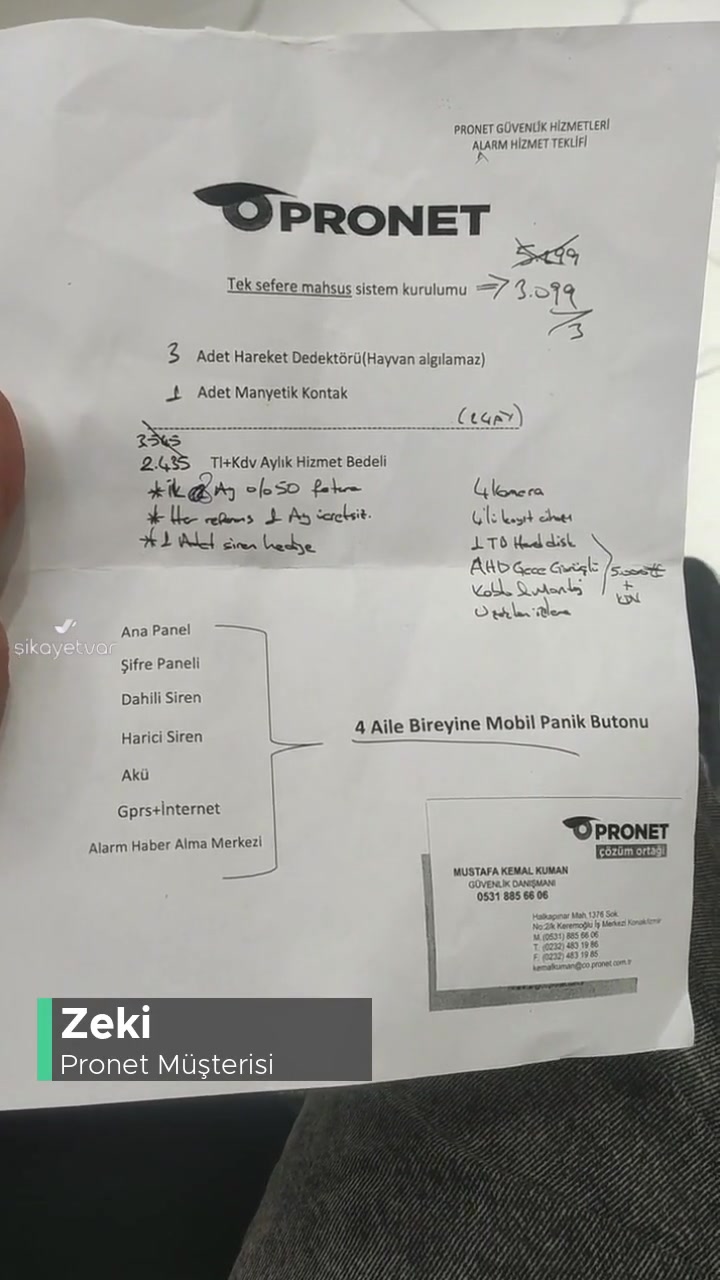 PRONET GÜVENLİK HİZMETLERİ
ALARM HİZMET TEKLİFİ
PRONET
5.199
Tek sefere mahsus sistem kurulumu => 3.099
/3
3 Adet Hareket Dedektörü(Hayvan algılamaz)
1 Adet Manyetik Kontak
(24AY)
2.435 Tl+Kdv Aylık Hizmet Bedeli
* ilk 2 Ay %50 fatura
* Her referans 1 Ay ücretsiz.
* 1 Adet siren hediye
4 Kamera
4'li kayıt cihazı
1 TB Hard disk
AHD Gece Görüşlü
Kablo & Montaj
Uzaktan izleme
5.000 tl
+
KDV
şikayetvar
Ana Panel
Şifre Paneli
Dahili Siren
Harici Siren
Akü
Gprs+İnternet
Alarm Haber Alma Merkezi
4 Aile Bireyine Mobil Panik Butonu
PRONET
çözüm ortağı
MUSTAFA KEMAL KUMAN
GÜVENLİK DANIŞMANI
0531 885 66 06
Halkapınar Mah.1376 Sok.
No:2/k Keremoğlu İş Merkezi Konak/İzmir
M. (0531) 885 66 06
T. (0232) 483 19 86
F. (0232) 483 19 85
kemalkuman@co.pronet.com.tr
Zeki
Pronet Müşterisi